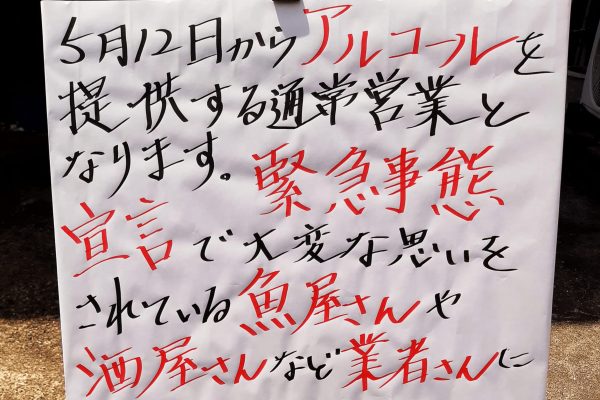 5月12日からアルコールを
提供する通常営業と
なります。緊急事態
宣言で大変な思いを
されている魚屋さんや
酒屋さんなど業者さんに